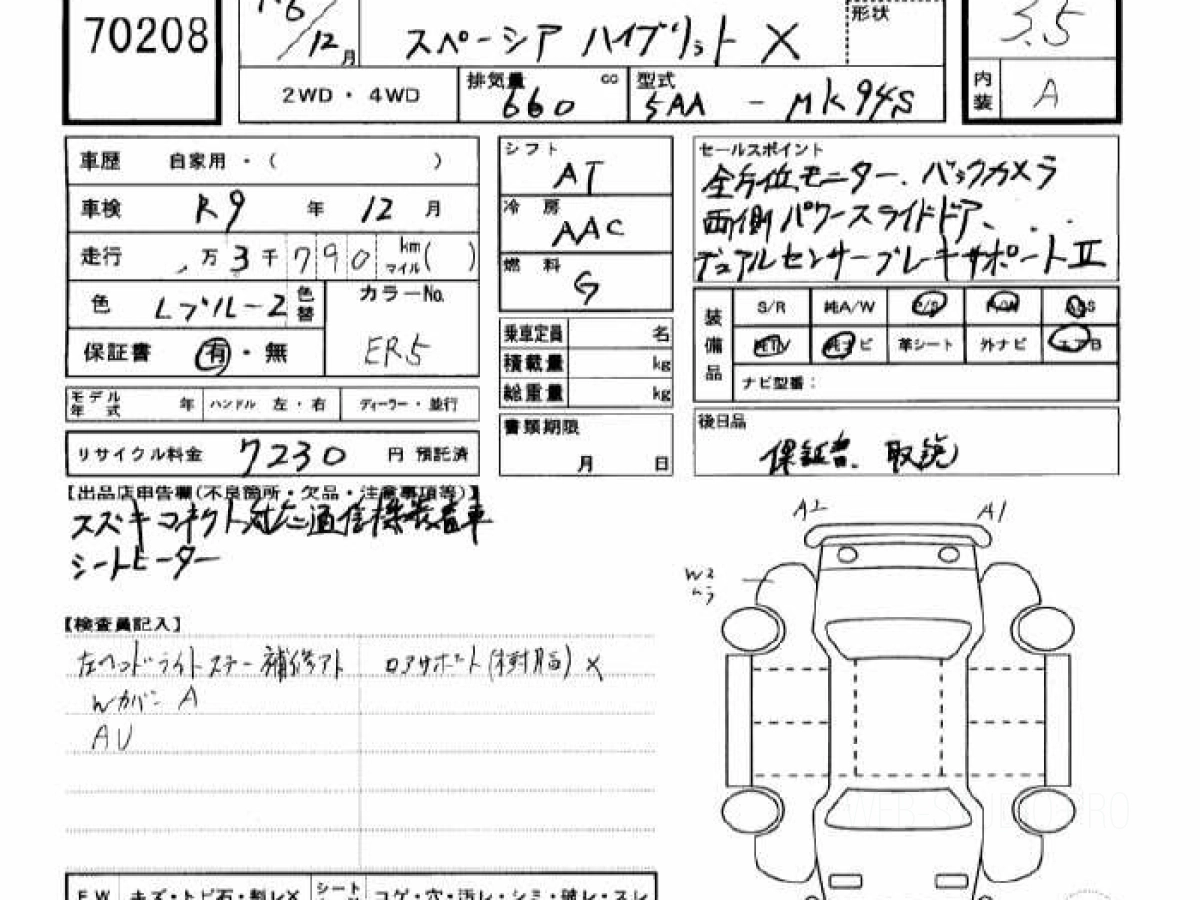 70208
R6
12月
スペーシア ハイブリット X
形状
3.5
2WD・4WD
排気量 660 cc
型式 5AA - MK94S
内装 A
車歴 自家用・( )
車検 R9 年 12 月
走行 万 3 千 790 km マイル ( )
色 Lブルー2 色替
カラーNo. ER5
保証書 有・無
モデル年式 年 ハンドル 左・右 ディーラー・並行
リサイクル料金 7230 円 預託済
シフト AT
冷房 AAC
燃料 G
乗車定員 名
積載量 kg
総重量 kg
書類期限
月 日
セールスポイント
全方位モニター、バックカメラ
両側パワースライドドア、
デュアルセンサーブレーキサポートⅡ
装備品
S/R 純A/W P/S P/W ABS
純TV 純ナビ 革シート 外ナビ エアB
ナビ型番：
後日品
保証書、取説
【出品店申告欄(不良箇所・欠品・注意事項等)】
スズキコネクト対応通信機装着車
シートヒーター
【検査員記入】
左ヘッドライトステー補修アト ロアサポート(樹脂)X
Wカバー A
AU
A2 A1
W2
ムラ
FW キズ・トビ石・割レX シート コゲ・穴・汚レ・シミ・破レ・スレ